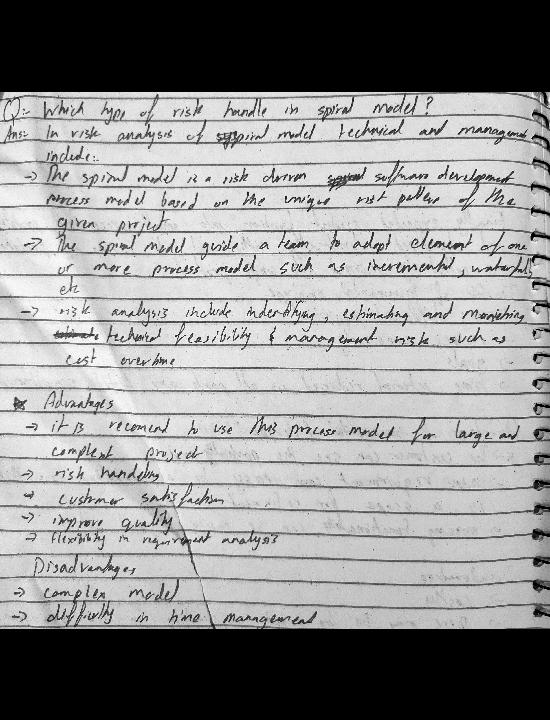 Q:- Which type of risk handle in spiral model?
Ans:- In risk analysis of spiral model technical and management
include:-
→ The spiral model is a risk driven software development
process model based on the unique risk pattern of the
given project
→ The spiral model guide a team to adopt element of one
or more process model such as incremental, waterfall,
etc
→ risk analysis include indentifying, estimating and monitering
technical feasibility & management risk such as
cost overtime
Advantages
→ it is recomend to use this process model for large and
complext project
→ risk handeling
→ customer satisfaction
→ improve quality
→ flexibility in requirement analysis
Disadvantages
→ complex model
→ difficulty in time management